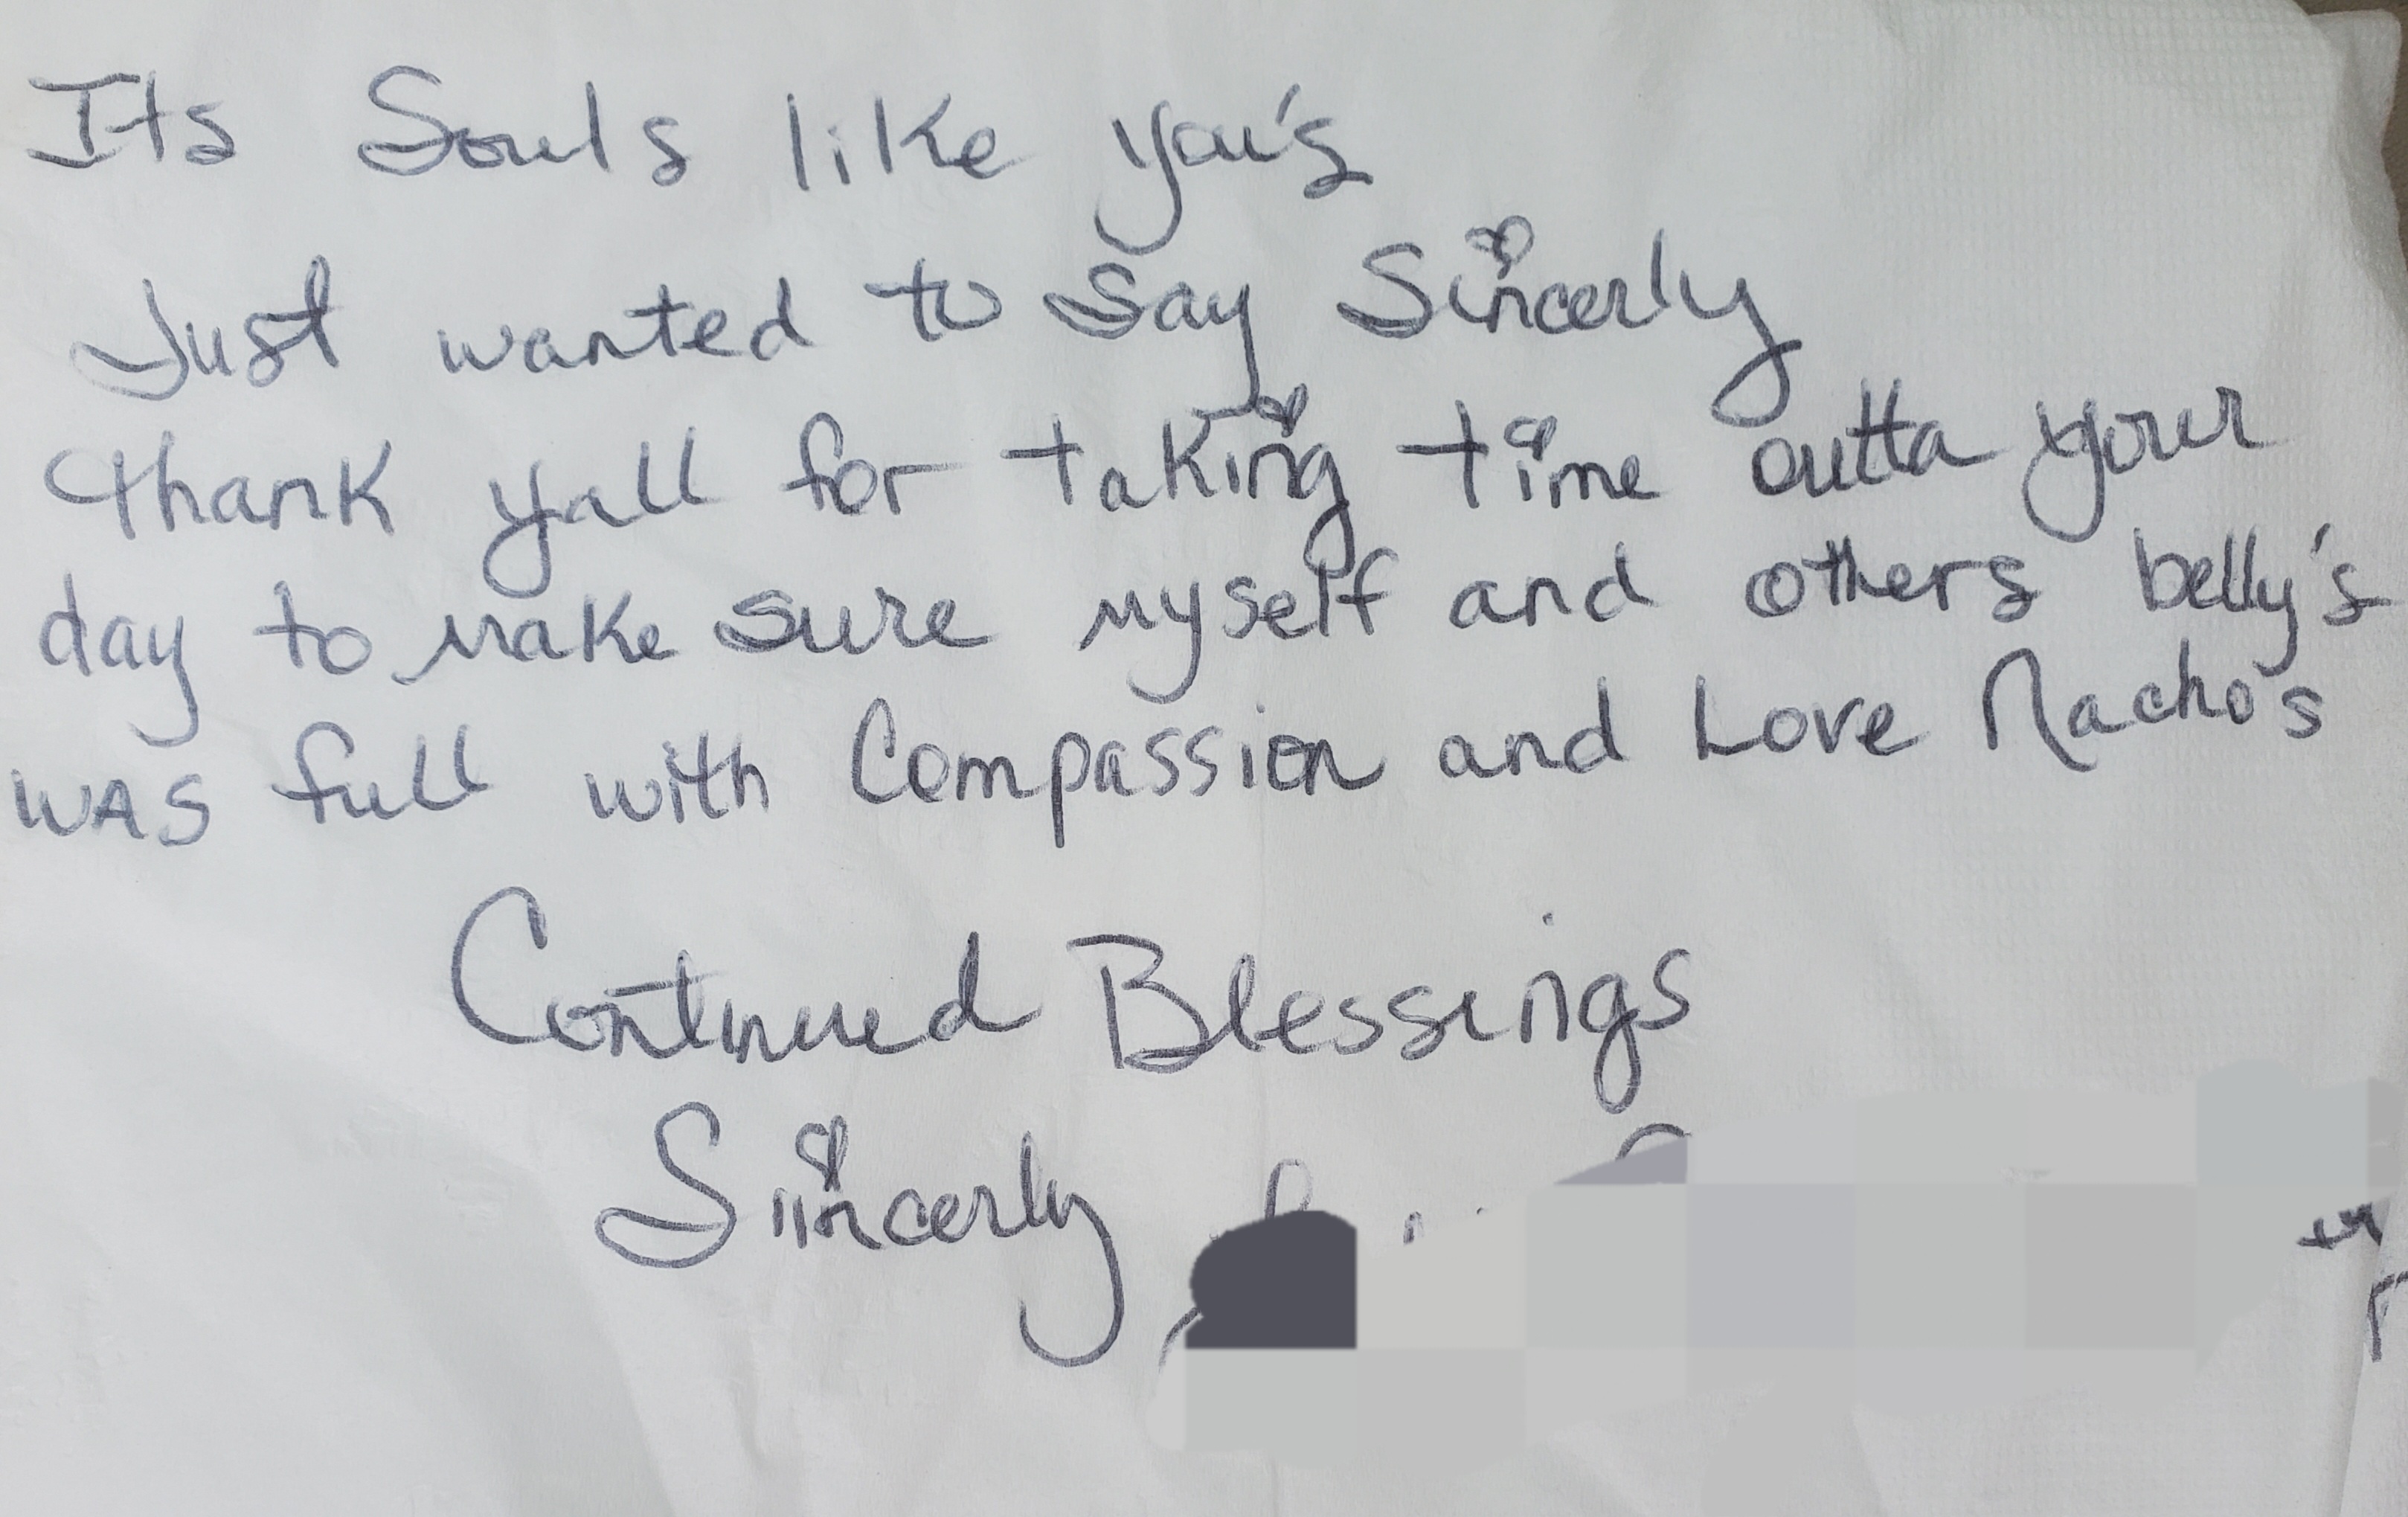 Its Souls like you's
Just wanted to say Sincerly
thank yall for taking time outta your
day to make sure myself and others belly's
was full with Compassion and Love Nacho's
Continued Blessings
Sincerly